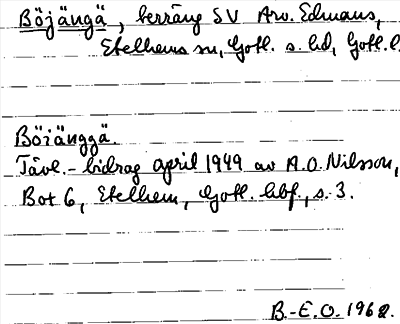 Böjängä, terräng SV Arv. Edmans,
Etelhems sn, Gotl. s. hd, Gotl. l.
Böiänggä.
Tävl.-bidrag april 1949 av A.O. Nilsson,
Bot 6, Etelhem, Gotl. hbf, s. 3.
B.-E.O. 1962.